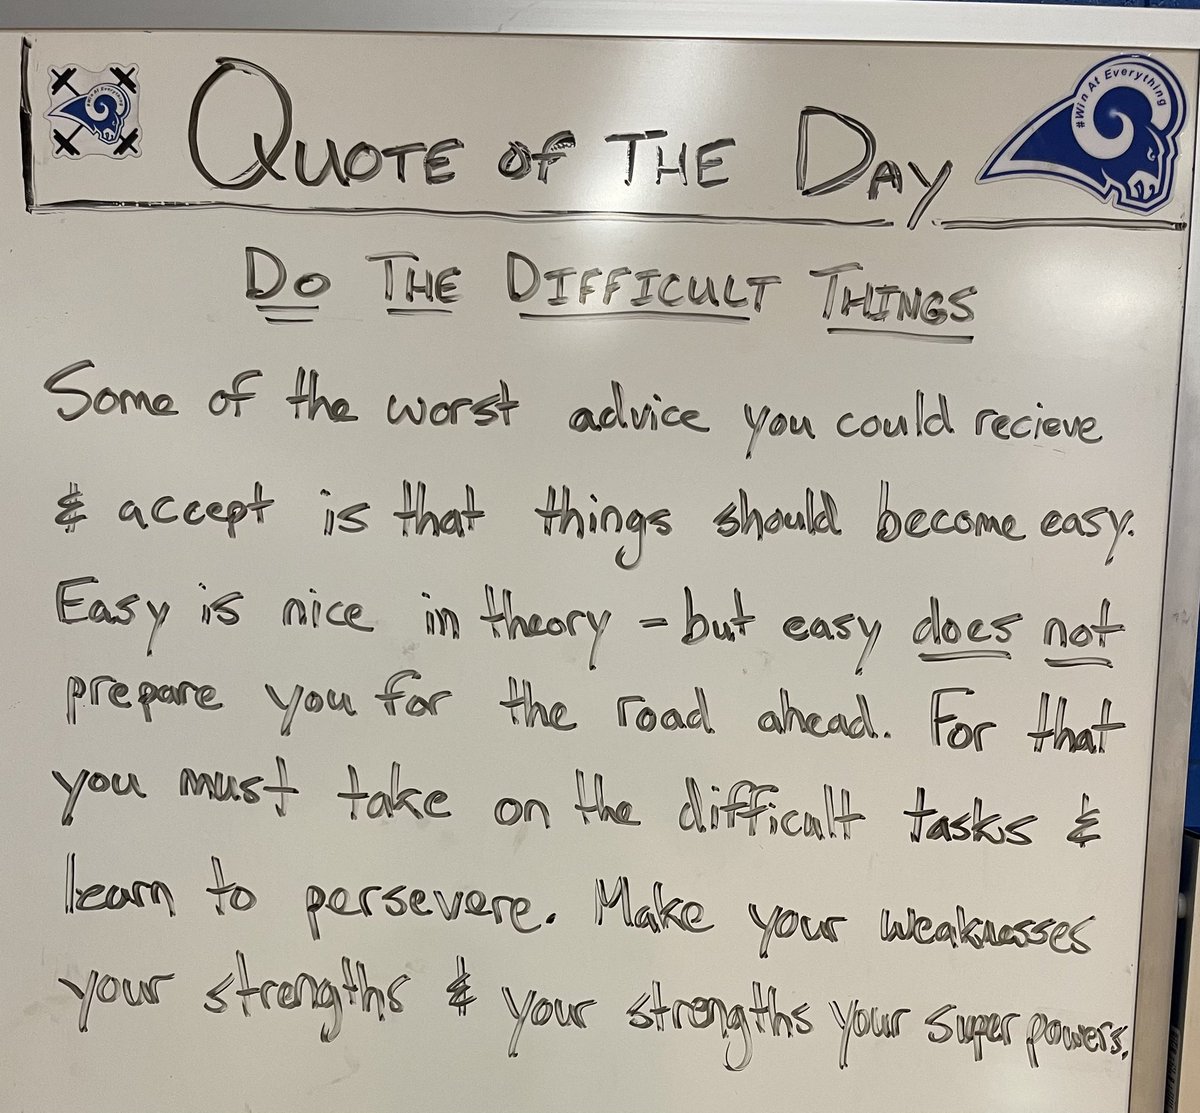 #Win At Everything
QUOTE OF THE DAY
#Win At Everything
DO THE DIFFICULT THINGS
Some of the worst advice you could recieve
& accept is that things should become easy.
Easy is nice in theory - but easy does not
prepare you for the road ahead. For that
you must take on the difficult tasks &
learn to persevere. Make your weaknesses
your strengths & your strengths your super powers.